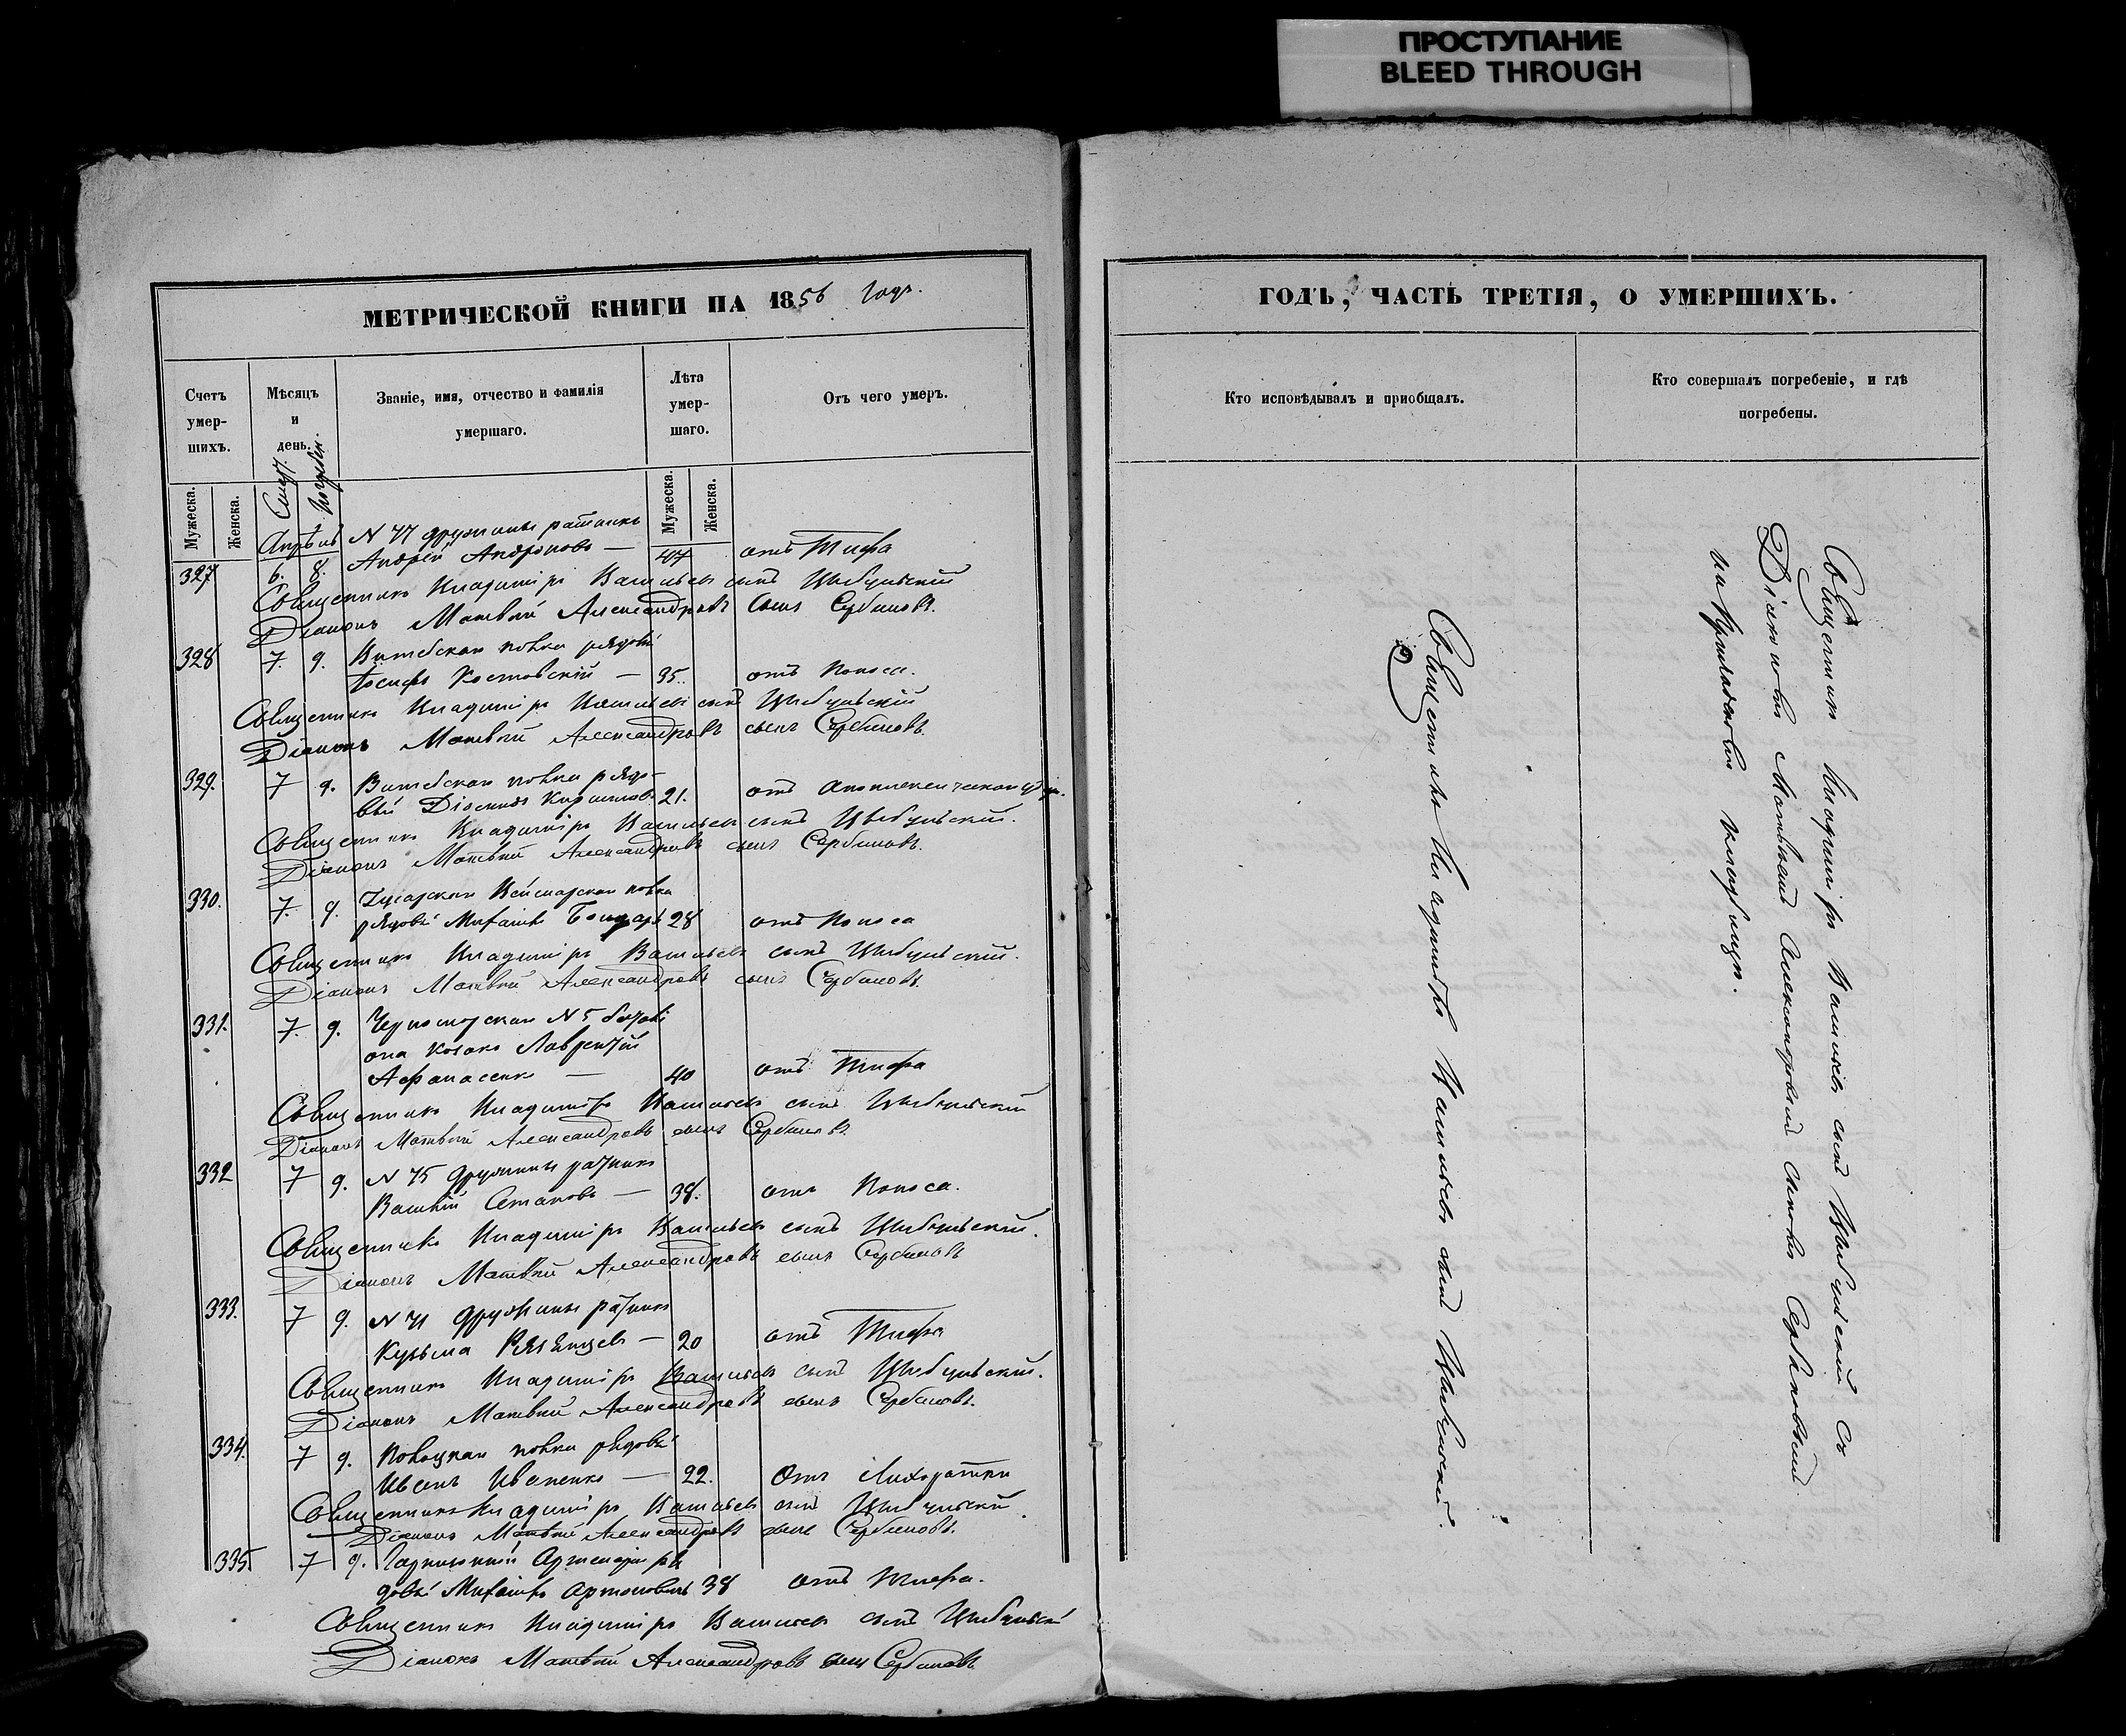 ПРОСТУПАНИЕ
BLEED THROUGH
МЕТРИЧЕСКОЙ КНИГИ НА 1856 годъ.
Счетъ умер-шихъ.
Мѣсяцъ и день.
Званіе, имя, отчество и фамилія умершаго.
Лѣта умер-шаго.
Отъ чего умеръ.
Мужеска.
Женска.
Смерт.
Погребен.
Мужеска.
Женска.
Апрѣль N 77 дружины ратникъ
327 6. 8. Андрей Андроновъ — 47 отъ Тифа
Священникъ Владиміръ Васильевъ сынъ Цыбульскій
Діаконъ Матвѣй Александровъ сынъ Сербиновъ.
328 7. 9. Витебскаго полка рядовый
Іосифъ Костовскій — 35. отъ Поноса.
Священникъ Владиміръ Васильевъ сынъ Цыбульскій
Діаконъ Матвѣй Александровъ сынъ Сербиновъ.
329. 7 9. Витебскаго полка рядо-
вый Діонисій 21. отъ
Священникъ Владиміръ Васильевъ сынъ Цыбульскій.
Діаконъ Матвѣй Александровъ сынъ Сербиновъ.
330. 7. 9. Гусарскаго Веймарскаго полка
рядовый Михаилъ Бондарь 28 отъ Поноса
Священникъ Владиміръ Васильевъ сынъ Цыбульскій.
Діаконъ Матвѣй Александровъ сынъ Сербиновъ.
331. 7. 9. Черноморскаго N 5 баталі
она козакъ Лаврентій
Афанасенко — 40 отъ Тифа
Священникъ Владиміръ Васильевъ сынъ Цыбульскій
Діаконъ Матвѣй Александровъ сынъ Сербиновъ.
332 7 9. N 75 дружины ратникъ
Василій Степановъ — 38. отъ Поноса.
Священникъ Владиміръ Васильевъ сынъ Цыбульскій.
Діаконъ Матвѣй Александровъ сынъ Сербиновъ
333. 7 9. N 71 дружины ратникъ
Кузьма — 20 отъ Тифа
Священникъ Владиміръ Васильевъ сынъ Цыбульскій.
Діаконъ Матвѣй Александровъ сынъ Сербиновъ.
334. 7 9. Полоцкаго полка рядовый
Иванъ Иваненко — 22. Отъ Лихоратки
Священникъ Владиміръ Васильевъ сынъ Цыбульскій.
Діаконъ Матвѣй Александровъ сынъ Сербиновъ.
335. 7 9. Гарнизонной Артилеріи ря
довый Михаилъ 38 отъ Тифа.
Священникъ Владиміръ Васильевъ сынъ Цыбульскій
Діаконъ Матвѣй Александровъ сынъ Сербиновъ
ГОДЪ, ЧАСТЬ ТРЕТІЯ, О УМЕРШИХЪ.
Кто исповѣдывалъ и пріобщалъ.
Кто совершалъ погребеніе, и гдѣ погребены.
Священникъ Владиміръ Васильевъ сынъ Цыбульскій.
Священникъ Владиміръ Васильевъ сынъ Цыбульскій съ
Діакономъ Матвѣемъ Александровымъ сыномъ Сербиновымъ
на кладбищѣ.